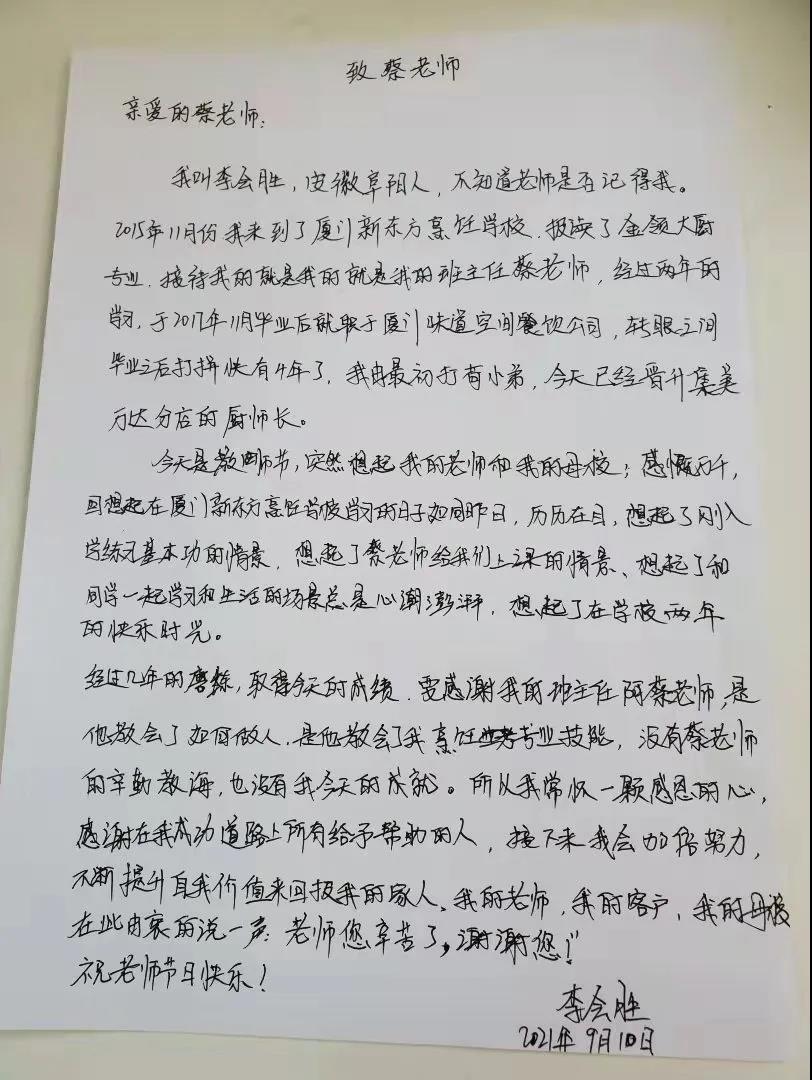 致蔡老师
亲爱的蔡老师：
我叫李会胜，安徽阜阳人，不知道老师是否记得我。
2015年11月份我来到了厦门新东方烹饪学校，报读了金领大厨
专业，接待我的就是我的就是我的班主任蔡老师，经过两年的
学习，于2017年11月毕业后就职于厦门味道空间餐饮公司，转眼之间
毕业之后打拼快有4年了，我由最初打荷小弟，今天已经晋升集美
万达分店的厨师长。
今天是教师节，突然想起我的老师和我的母校；感慨万千，
回想起在厦门新东方烹饪学校学习的日子如同昨日，历历在目，想起了刚入
学练习基本功的情景，想起了蔡老师给我们上课的情景、想起了和
同学一起学习和生活的场景总是心潮澎湃，想起了在学校两年
的快乐时光。
经过几年的磨练，取得今天的成绩，要感谢我的班主任阿蔡老师，是
他教会了如何做人，是他教会了我烹饪专业技能，没有蔡老师
的辛勤教海，也没有我今天的成就。所以我常怀一颗感恩的心，
感谢在我成功道路上所有给予帮助的人，接下来我会加倍努力，
不断提升自我价值来回报我的家人、我的老师，我的客户，我的母校
在此由衷的说一声：老师您辛苦了，谢谢您！"
祝老师节日快乐！
李会胜
2021年9月10日